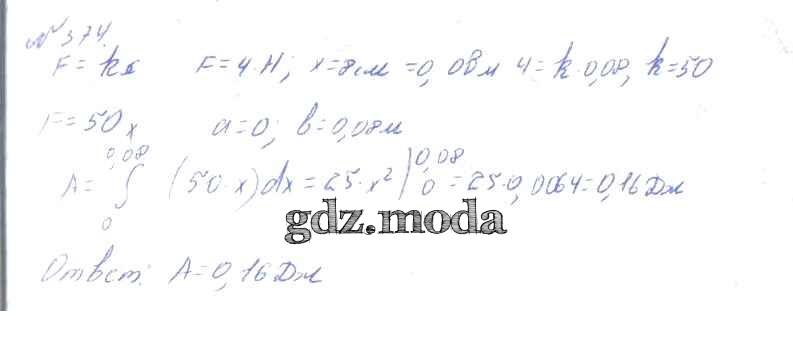 № 374.
F = kx F = 4 Н; x = 8см = 0,08м 4 = k·0,08, k = 50
F = 50x a = 0; b = 0,08м
A = ∫₀^0,08 (50·x)dx = 25·x² |₀^0,08 = 25·0,0064 = 0,16 Дж
gdz.moda
Ответ: A = 0,16 Дж